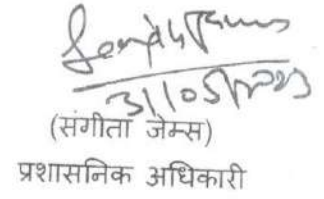 31/05/2023
(संगीता जेम्स)
प्रशासनिक अधिकारी